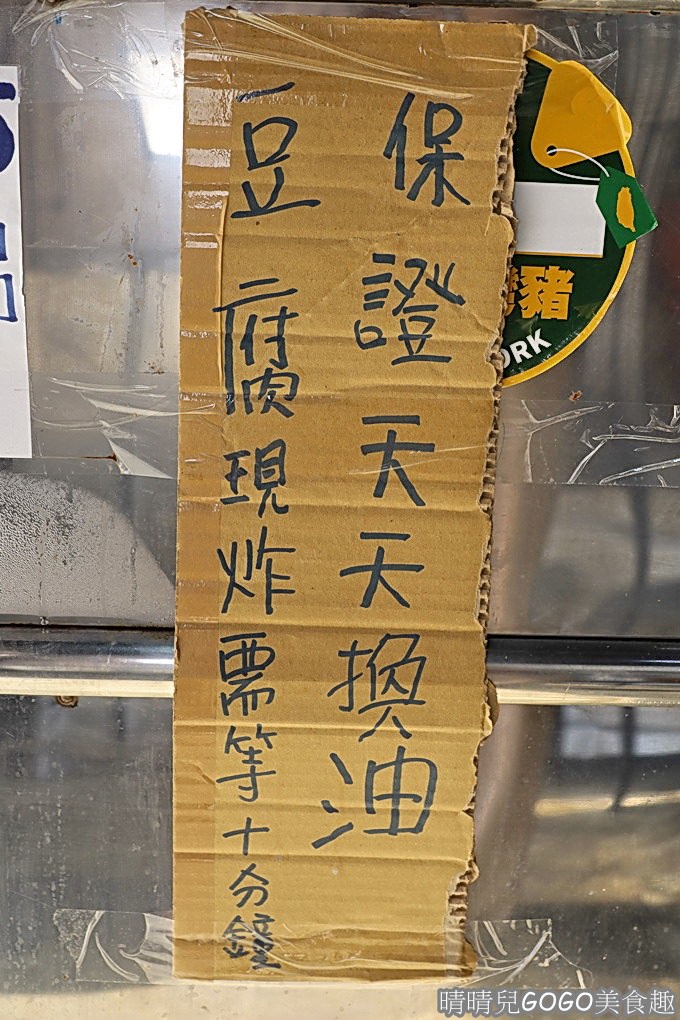 保證天天換油
豆腐現炸需等十分鐘
豬
ORK
晴晴兒GOGO美食趣